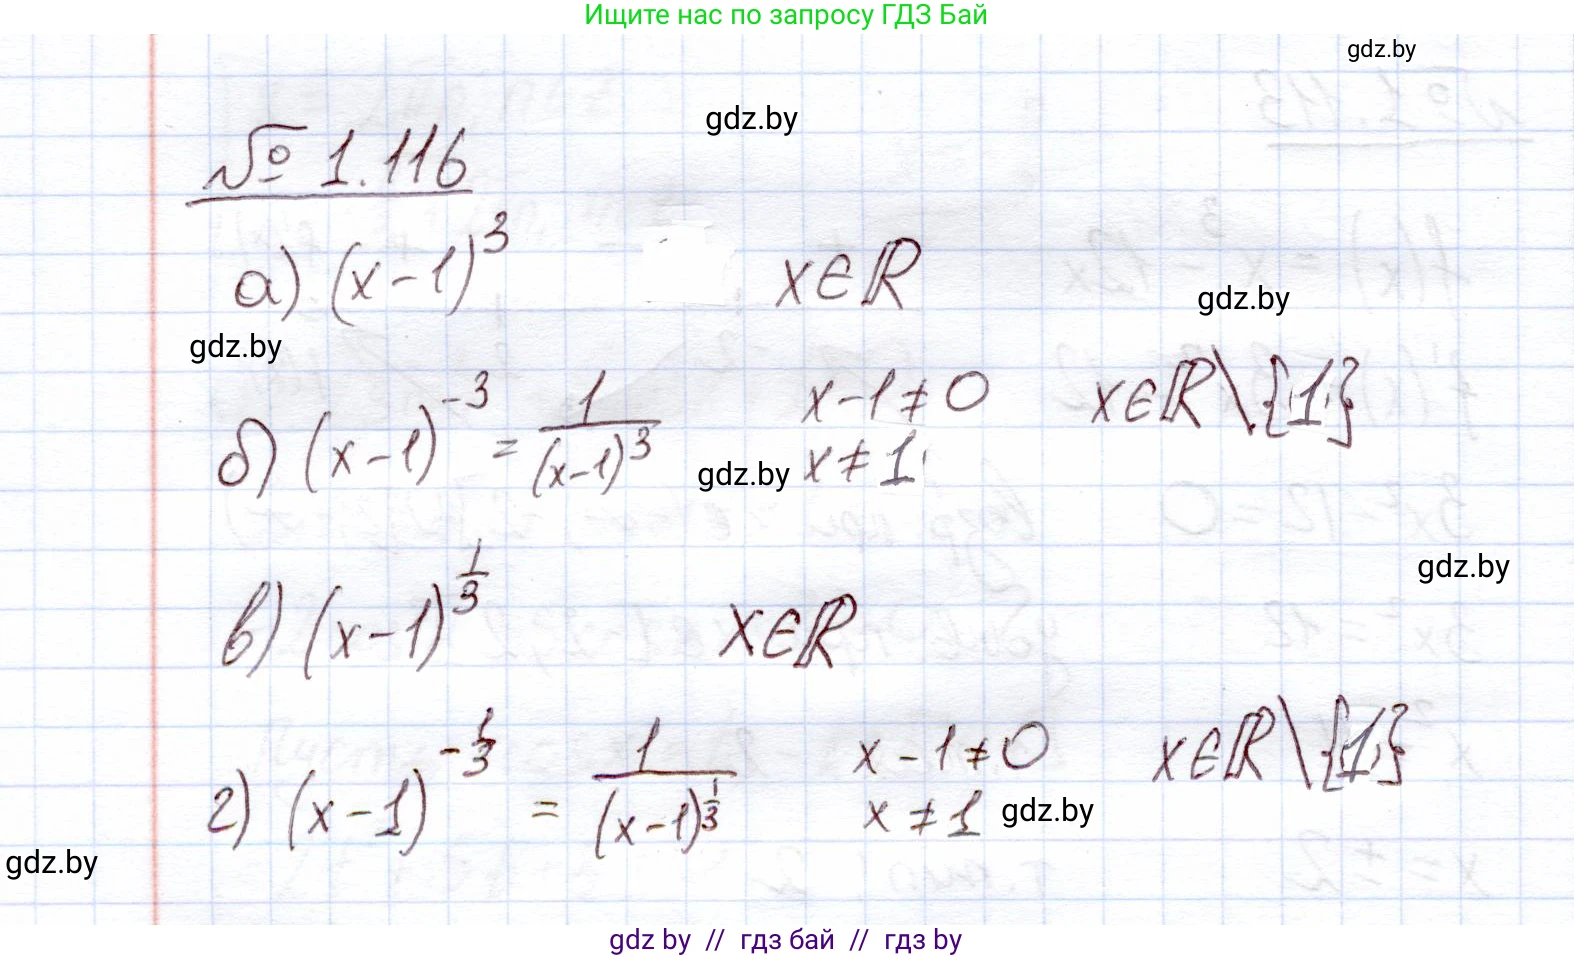 Ищите нас по запросу ГДЗ Бай
gdz.by
gdz.by
№ 1.116
а) (x-1)³ x∈ℝ
gdz.by
gdz.by
б) (x-1)⁻³ = 1/(x-1)³ x-1≠0 x∈ℝ\{1}
gdz.by x≠1
gdz.by
в) (x-1)^(1/3) x∈ℝ
г) (x-1)^(-1/3) = 1/(x-1)^(1/3) x-1≠0 x∈ℝ\{1}
x≠1 gdz.by
gdz.by
gdz by // гдз бай // гдз by